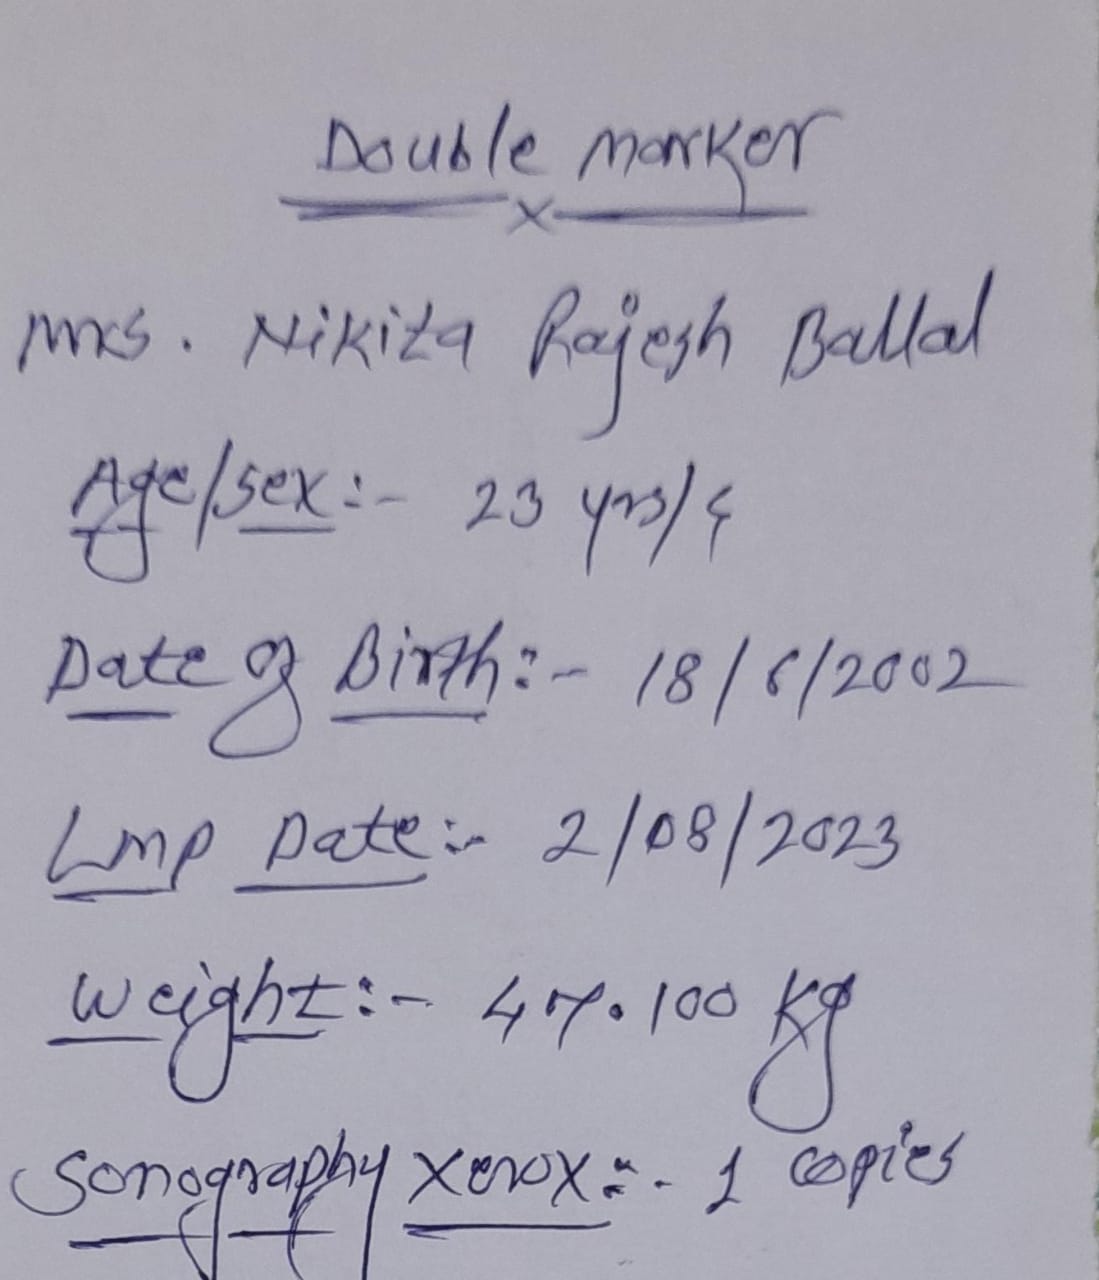 Double marker
x
Mrs. Nikita Rajesh Ballal
Age/sex:- 23 yrs/F
Date of Birth:- 18/6/2002
Lmp Date:- 2/08/2023
Weight:- 47.100 kg
Sonography Xerox:- 1 copies